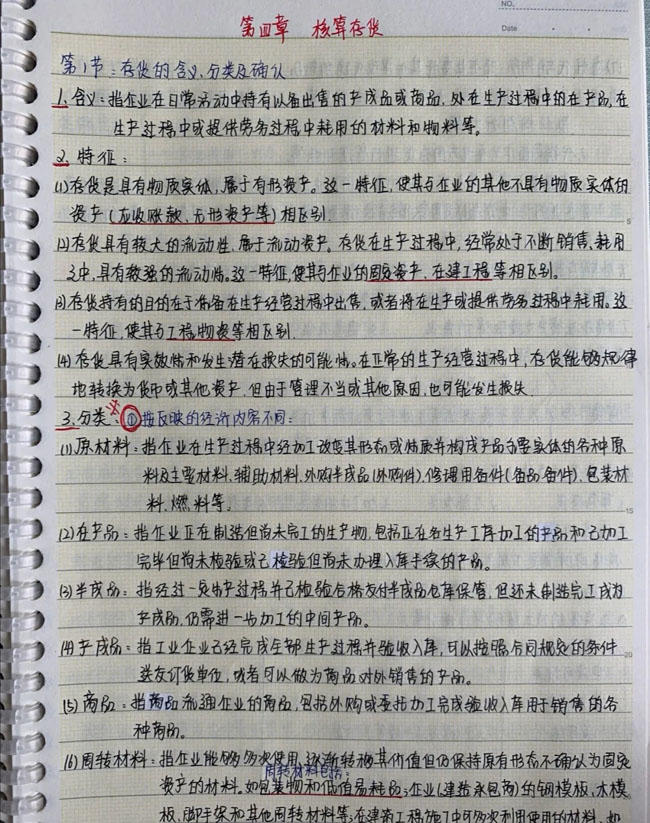 NO.
Date
第四章 核算存货
第1节:存货的含义、分类及确认
1. 含义:指企业在日常活动中持有以备出售的产成品或商品,处在生产过程中的在产品,在
生产过程中或提供劳务过程中耗用的材料和物料等。
2. 特征:
(1)存货是具有物质实体,属于有形资产。这一特征,使其与企业的其他不具有物质实体的
资产(应收账款、无形资产等)相区别.
(2)存货具有较大的流动性,属于流动资产。存货在生产过程中,经常处于不断销售、耗用
之中,具有较强的流动性。这一特征,使其与企业的固定资产、在建工程等相区别。
(3)存货持有的目的在于准备在生产经营过程中出售,或者将在生产或提供劳务过程中耗用。这
一特征,使其与工程物资等相区别.
(4)存货具有实效性和发生潜在损失的可能性。在正常的生产经营过程中,存货能够规律
地转换为货币或其他资产,但由于管理不当或其他原因,也可能发生损失
3.分类:①按反映的经济内容不同:
(1)原材料:指企业在生产过程中经加工改变其形态或性质并构成产品主要实体的各种原
料及主要材料、辅助材料、外购半成品(外购件)、修理用备件(备品备件)、包装材
料、燃料等。
5
15
(2)在产品:指企业正在制造但尚未完工的生产物,包括正在各生产工序加工的产品和已加工
完毕但尚未检验或已检验但尚未办理入库手续的产品。
(3)半成品:指经过一定生产过程并已检验合格交付半成品仓库保管,但还未制造完工成为
产成品,仍需进一步加工的中间产品。
(4)产成品:指工业企业已经完成全部生产过程并验收入库,可以按照合同规定的条件
20
送交订货单位,或者可以做为商品对外销售的产品。
(5)商品:指商品流通企业的商品,包括外购或委托加工完成验收入库用于销售的各
种商品。
(6)周转材料:指企业能够多次使用、逐渐转移其价值但仍保持原有形态不确认为固定
周转材料包括:
资产的材料。如包装物和低值易耗品;企业(建造承包商)的钢模板、木模
板、脚手架和其他周转材料等;在建筑工程施工中可多次利用使用的材料,如